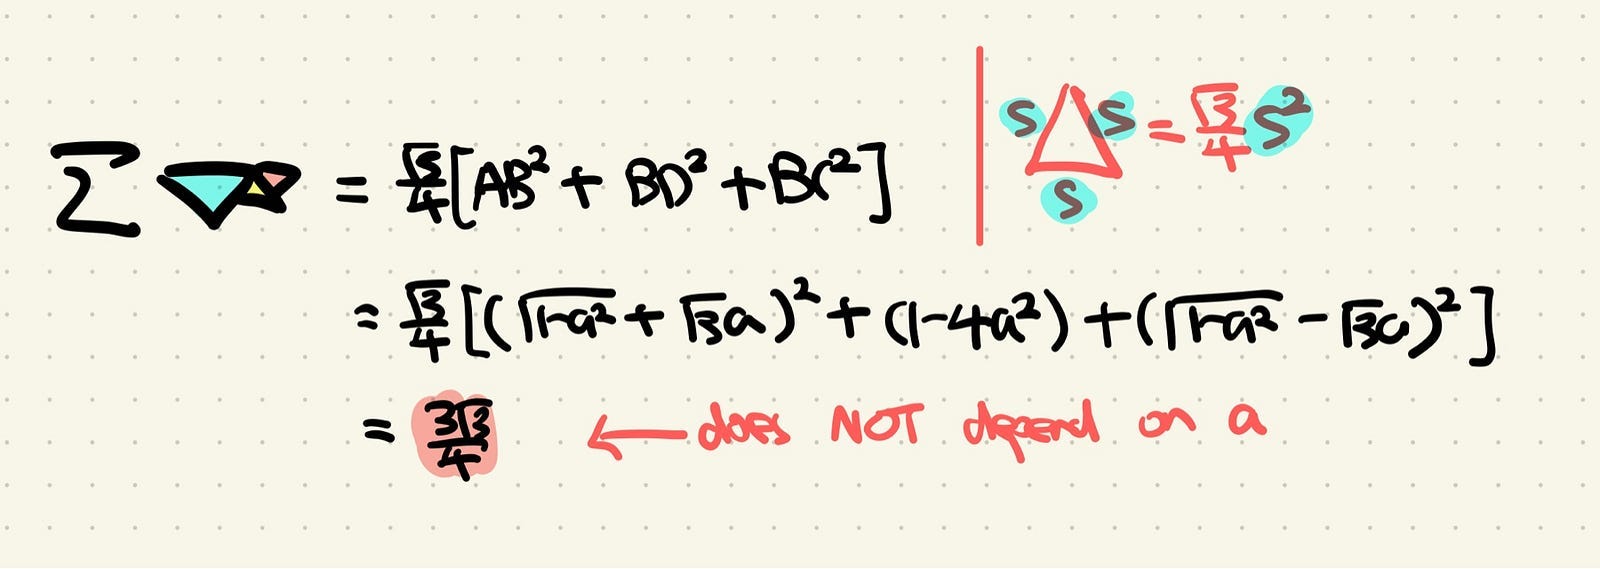 Σ = √3/4 [AB² + BD² + BC²]
S S S = √3/4 S²
= √3/4 [(√1-a² + √3a)² + (1-4a²) + (√1-a² - √3a)²]
= 3√3/4 ← does NOT depend on a